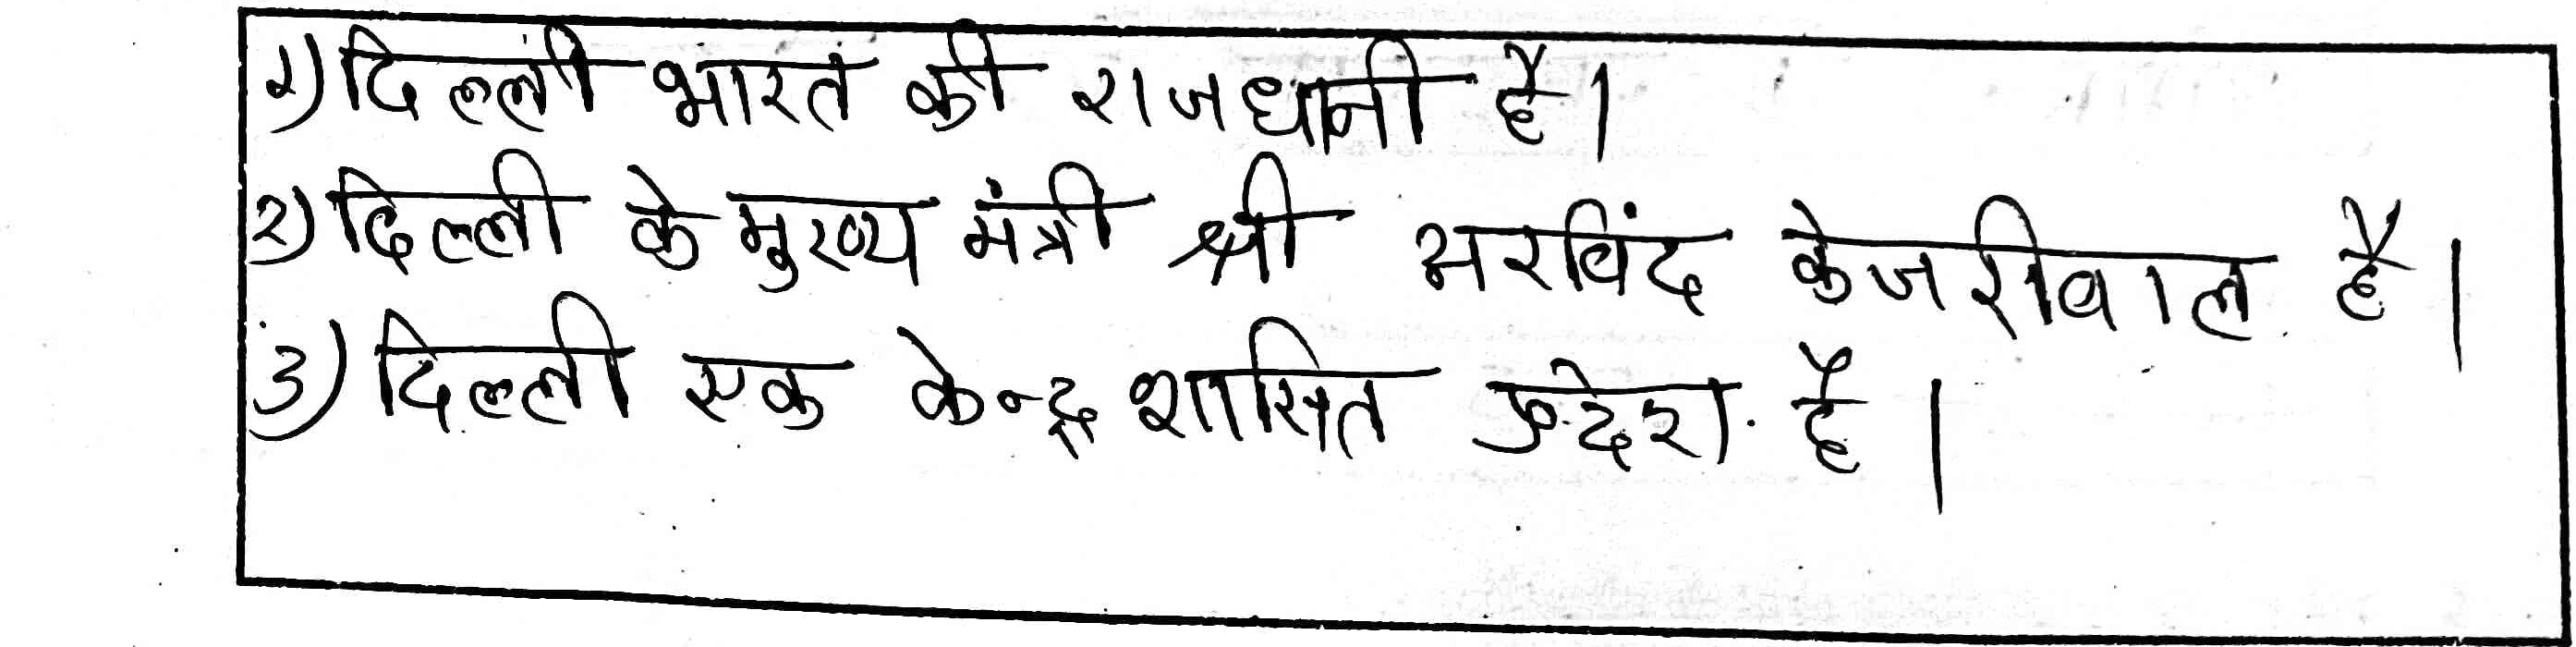 १) दिल्ली भारत की राजधानी है।
२) दिल्ली के मुख्य मंत्री श्री अरविंद केजरीवाल है।
३) दिल्ली एक केन्द्र शासित प्रदेश है।